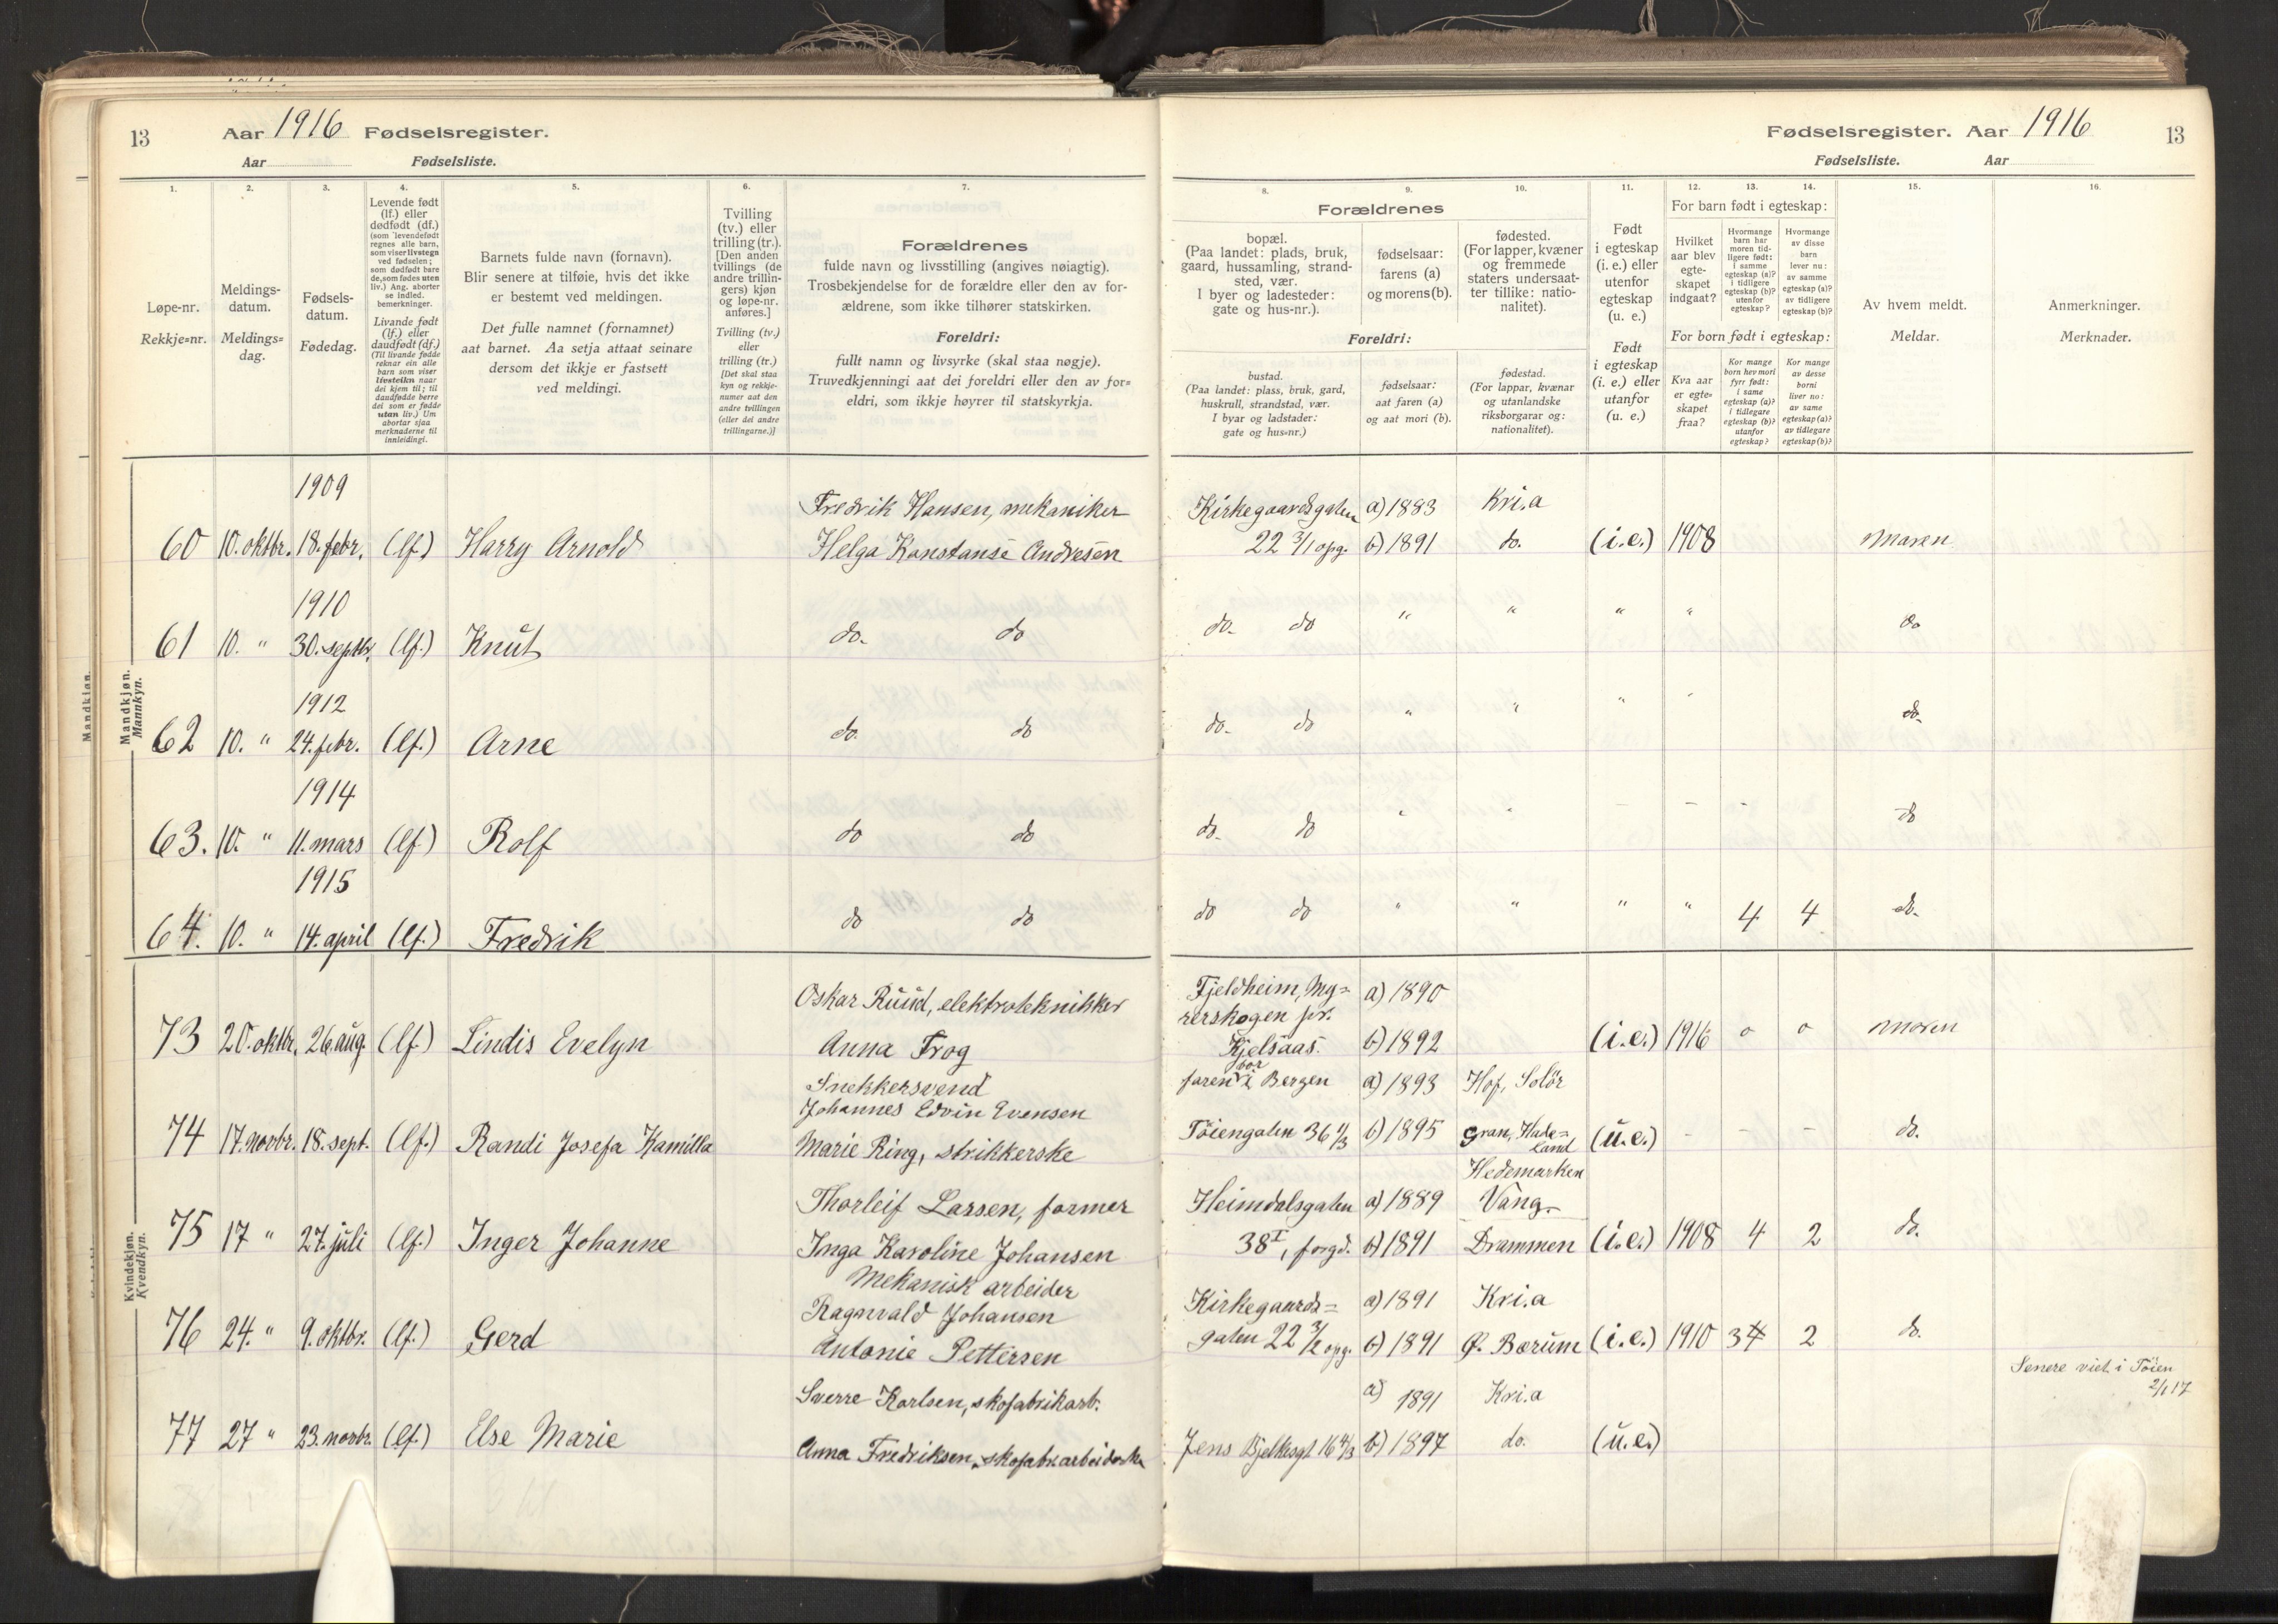 13
Aar 1916 Fødselsregister.
Aar Fødselsliste.
1. 2. 3. 4. 5. 6. 7.
Løpe-nr.
Rekkje=nr.
Meldings-
datum.
Meldings=
dag.
Fødsels-
datum.
Fødedag.
Levende født
(lf.) eller
dødfødt (df.)
(som levendefødt
regnes alle barn,
som viser livstegn
ved fødselen;
som dødfødt bare
de, som fødes uten
liv.) Ang. aborter
se indled.
bemerkninger.
Livande født
(lf.) eller
daudfødt (df.)
(Til livande fødde
reknar ein alle
barn som viser
livsteikn naar
dei kjem til; til
daudfødde berre
dei som er fødde
utan liv.) Um
abortar sjaa
merknaderne til
innleidingi.
Barnets fulde navn (fornavn).
Blir senere at tilføie, hvis det ikke
er bestemt ved meldingen.
Det fulle namnet (fornamnet)
aat barnet. Aa setja attaat seinare
dersom det ikkje er fastsett
ved meldingi.
Tvilling
(tv.) eller
trilling (tr.).
[Den anden
tvillings (de
andre trillin-
gers) kjøn
og løpe-nr.
anføres.]
Tvilling (tv.)
eller
trilling (tr.)
[Det skal staa
kyn og rekkje-
numer aat den
andre tvillingen
(eller dei andre
trillingarne.)]
Forældrenes
fulde navn og livsstilling (angives nøiagtig).
Trosbekjendelse for de forældre eller den av for-
ældrene, som ikke tilhører statskirken.
Foreldri:
fullt namn og livsyrke (skal staa nøgje).
Truvedkjenningi aat dei foreldri eller den av for=
eldri, som ikkje høyrer til statskyrkja.
Mandkjøn.
Mandkjøn.
Mannkyn.
1909
60 10. oktbr. 18. febr. (lf.) Harry Arnold
Fredrik Hansen, mekaniker
Helga Konstanse Andresen
1910
61 10. " 30. septbr. (lf.) Knut do. do
1912
62 10. " 24. febr. (lf.) Arne do. do
1914
63. 10. " 11. mars (lf.) Rolf do do
1915
64. 10. " 14. april (lf.) Fredrik do do
Kvindekjøn.
Kvendkyn.
Oskar Ruud, elektrotekniker
73 20. oktbr. 26. aug. (lf.) Lindis Evelyn Anna Frog
Snekkersvend
Johannes Edvin Evensen
74 17. novbr. 18. sept. (lf.) Randi Josefa Kamilla Marie Ring, strikkerske
Thorleif Larsen, former
75 17 " 27. juli (lf.) Inger Johanne Inga Karoline Johansen
Mekanisk arbeider
Ragnvald Johansen
76 24. " 9. oktbr. (lf.) Gerd Antonie Pettersen
Sverre Karlsen, skofabrikarb.
77 27 " 23. novbr. (lf.) Else Marie Anna Fredriksen, skofabr.arbeiderske
Fødselsregister. Aar 1916 13
Fødselsliste. Aar
8. 9. 10. 11. 12. 13. 14. 15. 16.
Forældrenes
bopæl.
(Paa landet: plads, bruk,
gaard, hussamling, strand-
sted, vær.
I byer og ladesteder:
gate og hus-nr.).
fødselsaar:
farens (a)
og morens (b).
fødested.
(For lapper, kvæner
og fremmede
staters undersaat-
ter tillike: natio-
nalitet).
Foreldri:
bustad.
(Paa landet: plass, bruk, gard,
huskrull, strandstad, vær.
I byar og ladstader:
gate og hus=nr.)
fødselsaar:
aat faren (a)
og aat mori (b).
fødestad.
(For lappar, kvænar
og utanlandske
riksborgarar og:
nationalitet).
Født
i egteskap
(i. e.) eller
utenfor
egteskap
(u. e.)
Født
i egteskap
(i. e.) eller
utanfor
(u. e.)
For barn født i egteskap:
Hvilket
aar blev
egte-
skapet
indgaat?
Hvormange
barn har
moren tid-
ligere født:
i samme
egteskap (a)?
i tidligere
egteskap (b)?
utenfor
egteskap?
Hvormange
av disse
barn
lever nu:
av samme
egteskap (a)?
av tidligere
egteskap (b)?
For born født i egteskap:
Kva aar
er egte=
skapet
fraa?
Kor mange
born hev mori
fyrr født:
i same
egteskap (a)?
i tidlegare
egteskap (b)?
utanfor
egteskap?
Kor mange
av desse
borni
liver no:
av same
egteskap (a)?
av tidlegare
egteskap (b)?
Av hvem meldt.
Meldar.
Anmerkninger.
Merknader.
Kirkegaardsgaten a) 1883 Kri.a
22 3/1 opg. b) 1891 do. (i.e.) 1908 Moren
do. do " " " " do
do. do " " " " do.
do. do " " – – – do
do do " " " " 4 4 do.
Fjeldheim, Myrerskogen pr. a) 1890
Kjelsaas. b) 1892 (i.e.) 1916 0 0 Moren
faren bor i Bergen a) 1893 Hof, Solör
Töiengaten 36 11/3 b) 1895 Gran, Hade=
land (u.e.) – – – do.
Hedemarken
Heimdalsgaten a) 1889 Vang.
38 I, forgd. b) 1891 Drammen (i.e.) 1908 4 2 do.
Kirkegaards= a) 1891 Kri.a
gaten 22 3/2 opg. b) 1891 Ø. Bærum (i.e.) 1910 3 4 2 do.
Senere viet i Töien
2/1 17
a) 1891 Kri.a
Jens Bjelkesgt 16 4/3 b) 1897 do. (u.e.)